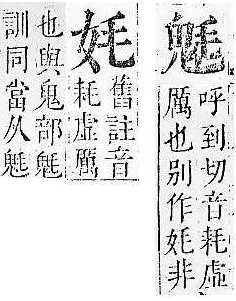 呼到切音耗虛
厲也别作非
舊註音
耗虛厲
也與鬼部
訓同當从